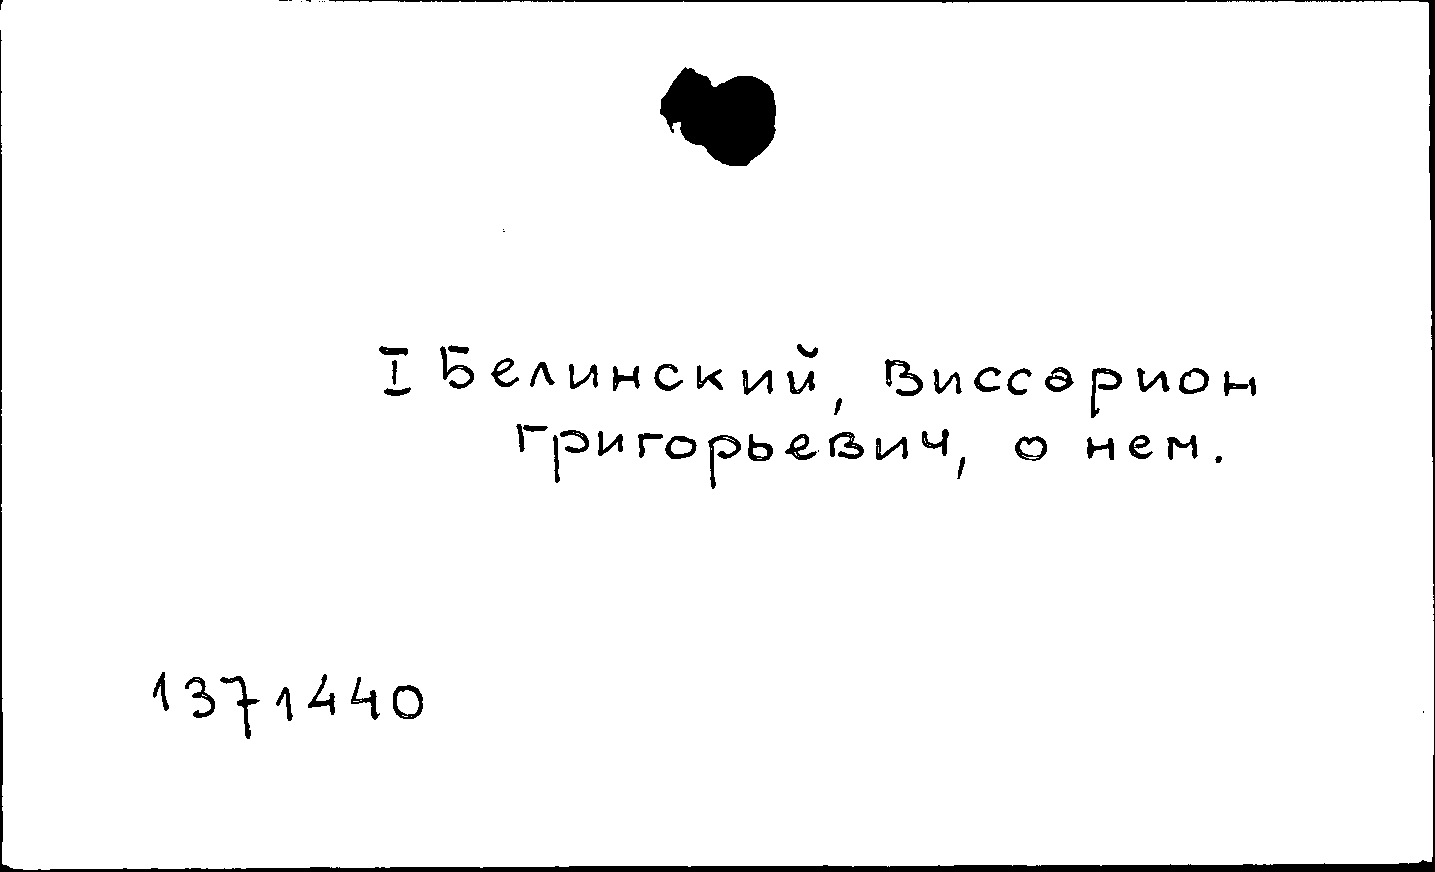 I Белинский, Виссарион
Григорьевич, о нем.
1371440